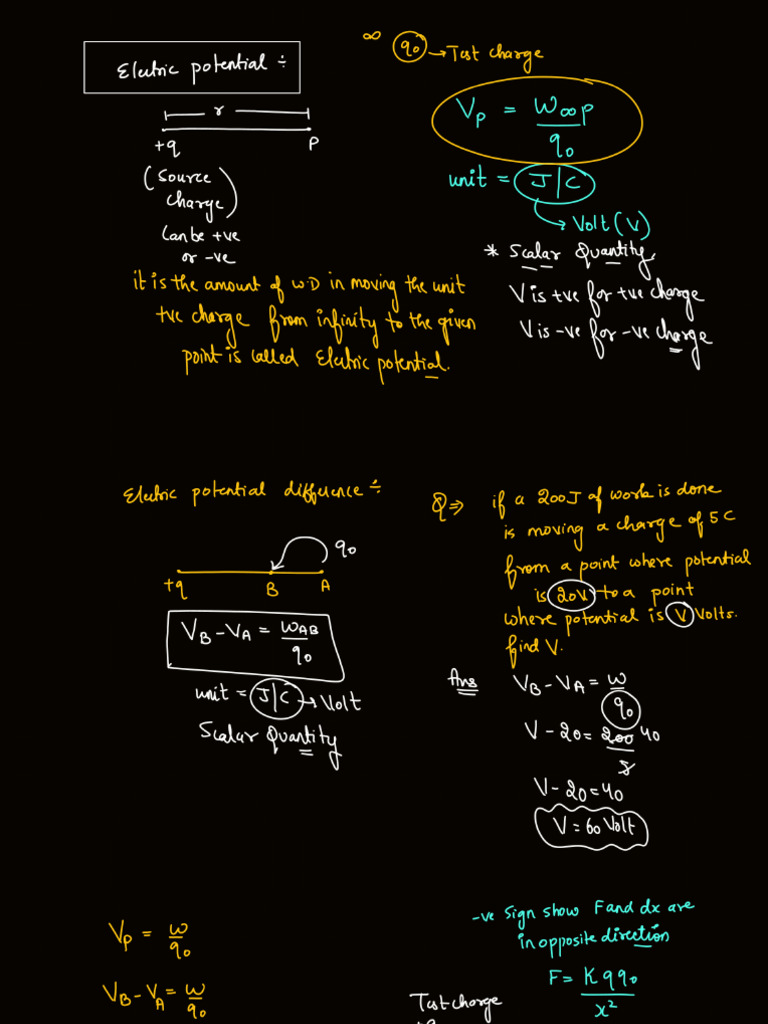 Electric potential ÷
r
+q P
(Source
charge)
Can be +ve
or -ve
∞ q₀ → Test charge
Vp = W∞p / q₀
unit = J/C
→ Volt (V)
* Scalar Quantity
V is +ve for +ve charge
V is -ve for -ve charge
it is the amount of W.D in moving the unit
+ve charge from infinity to the given
point is called Electric potential.
Electric potential difference ÷
q₀
+q B A
VB - VA = WAB / q₀
unit = J/C → Volt
Scalar Quantity
Q ⇒ if a 200J of work is done
is moving a charge of 5C
from a point where potential
is 20V to a point
where potential is V Volts.
find V.
Ans VB - VA = W / q₀
V - 20 = 200 / 5 40
V - 20 = 40
V = 60 Volt
Vp = W / q₀
VB - VA = W / q₀
-ve sign show F and dx are
in opposite direction
F = K q q₀ / x²
Test charge